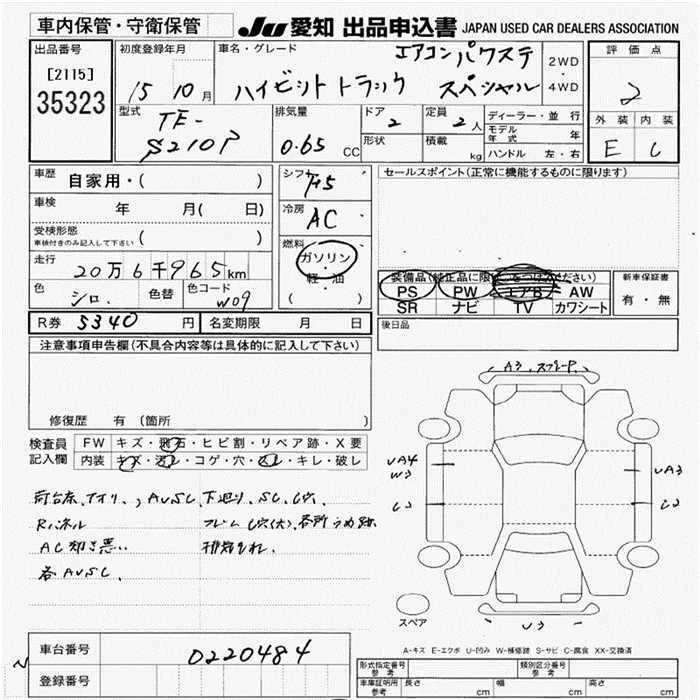 車内保管・守衛保管
JU 愛知 出品申込書 JAPAN USED CAR DEALERS ASSOCIATION
出品番号
[2115]
35323
初度登録年月
15 10月
車名・グレード
エアコン パワステ
ハイゼット トラック スペシャル
2WD
・
4WD
評価点
2
外装 内装
E C
型式
TE-
S210P
排気量
0.65 CC
ドア
2
定員
2人
形状
積載
kg
ディーラー・並行
モデル年式 年
ハンドル 左・右
車歴 自家用・( )
車検 年 月( 日)
受検形態
車検付きのみ記入して下さい ( )
走行
20万6千965km
色
シロ.
色替
色コード
W09
シフト
F5
冷房
AC
燃料
ガソリン
・
軽・油
( )
セールスポイント(正常に機能するものに限ります)
装備品(純正品に限 をつけください)
PS PW エアB AW
SR ナビ TV カワシート
新車保証書
有・無
R券 5340 円
名変期限 月 日
後日品
注意事項申告欄(不具合内容等は具体的に記入して下さい)
修復歴 有 (箇所 )
検査員
記入欄
FW キズ・飛石・ヒビ割・リペア跡・X要
内装 キズ・汚レ・コゲ・穴・凹レ・キレ・破レ
荷台条、アオリ、, AUSC, 下廻り, SC, C穴,
Rパネル フレーム C穴(大), 各所うめ跡
AC効き悪い 排気もれ,
各AUSC,
A3. スプレーP.
UA4
W3
C2
UA3
C2
U3
スペア
A-キズ E-エクボ U-凹み W-補修跡 S-サビ C-腐食 XX-交換済
車台番号 0220484
登録番号
形式指定番号
参考
類別区分番号
参考
車庫証明用
参考
長さ cm 幅 cm 高さ cm